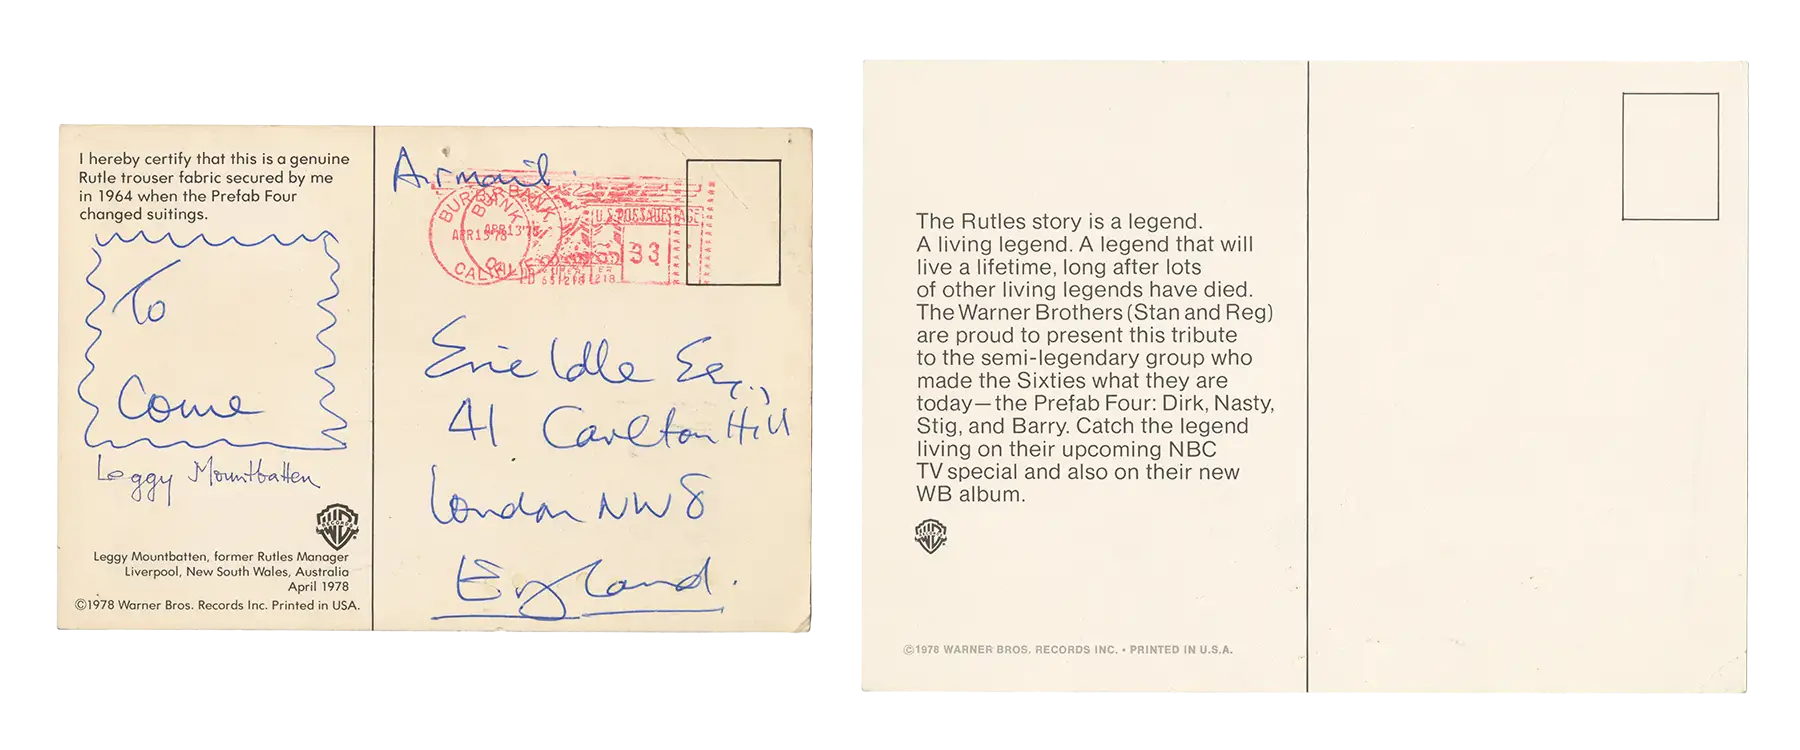 I hereby certify that this is a genuine
Rutle trouser fabric secured by me
in 1964 when the Prefab Four
changed suitings.
To
Come
Leggy Mountbatten
RECORDS
Leggy Mountbatten, former Rutles Manager
Liverpool, New South Wales, Australia
April 1978
©1978 Warner Bros. Records Inc. Printed in USA.
Airmail.
BURBANK
BURBANK
APR 13'78
APR 13'78
CALIF
U.S. POSTAGE
33
Eric Idle Esq.,
41 Carlton Hill
London NW8
England.
The Rutles story is a legend.
A living legend. A legend that will
live a lifetime, long after lots
of other living legends have died.
The Warner Brothers (Stan and Reg)
are proud to present this tribute
to the semi-legendary group who
made the Sixties what they are
today—the Prefab Four: Dirk, Nasty,
Stig, and Barry. Catch the legend
living on their upcoming NBC
TV special and also on their new
WB album.
RECORDS
©1978 WARNER BROS. RECORDS INC. • PRINTED IN U.S.A.